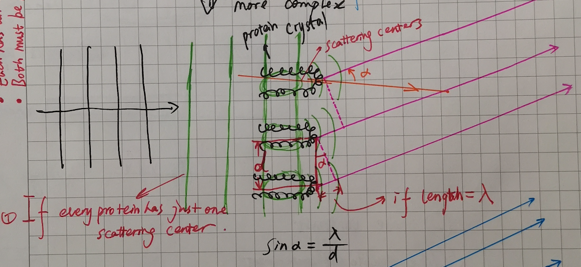 more complex
protain crystal
scattering centers
α
• Both must be
d
α
① If every protein has just one
scattering center.
if length = λ
sin α = λ/d